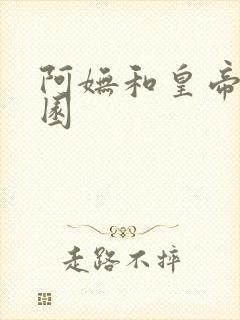 阿嫵和皇帝
園
走路不摔